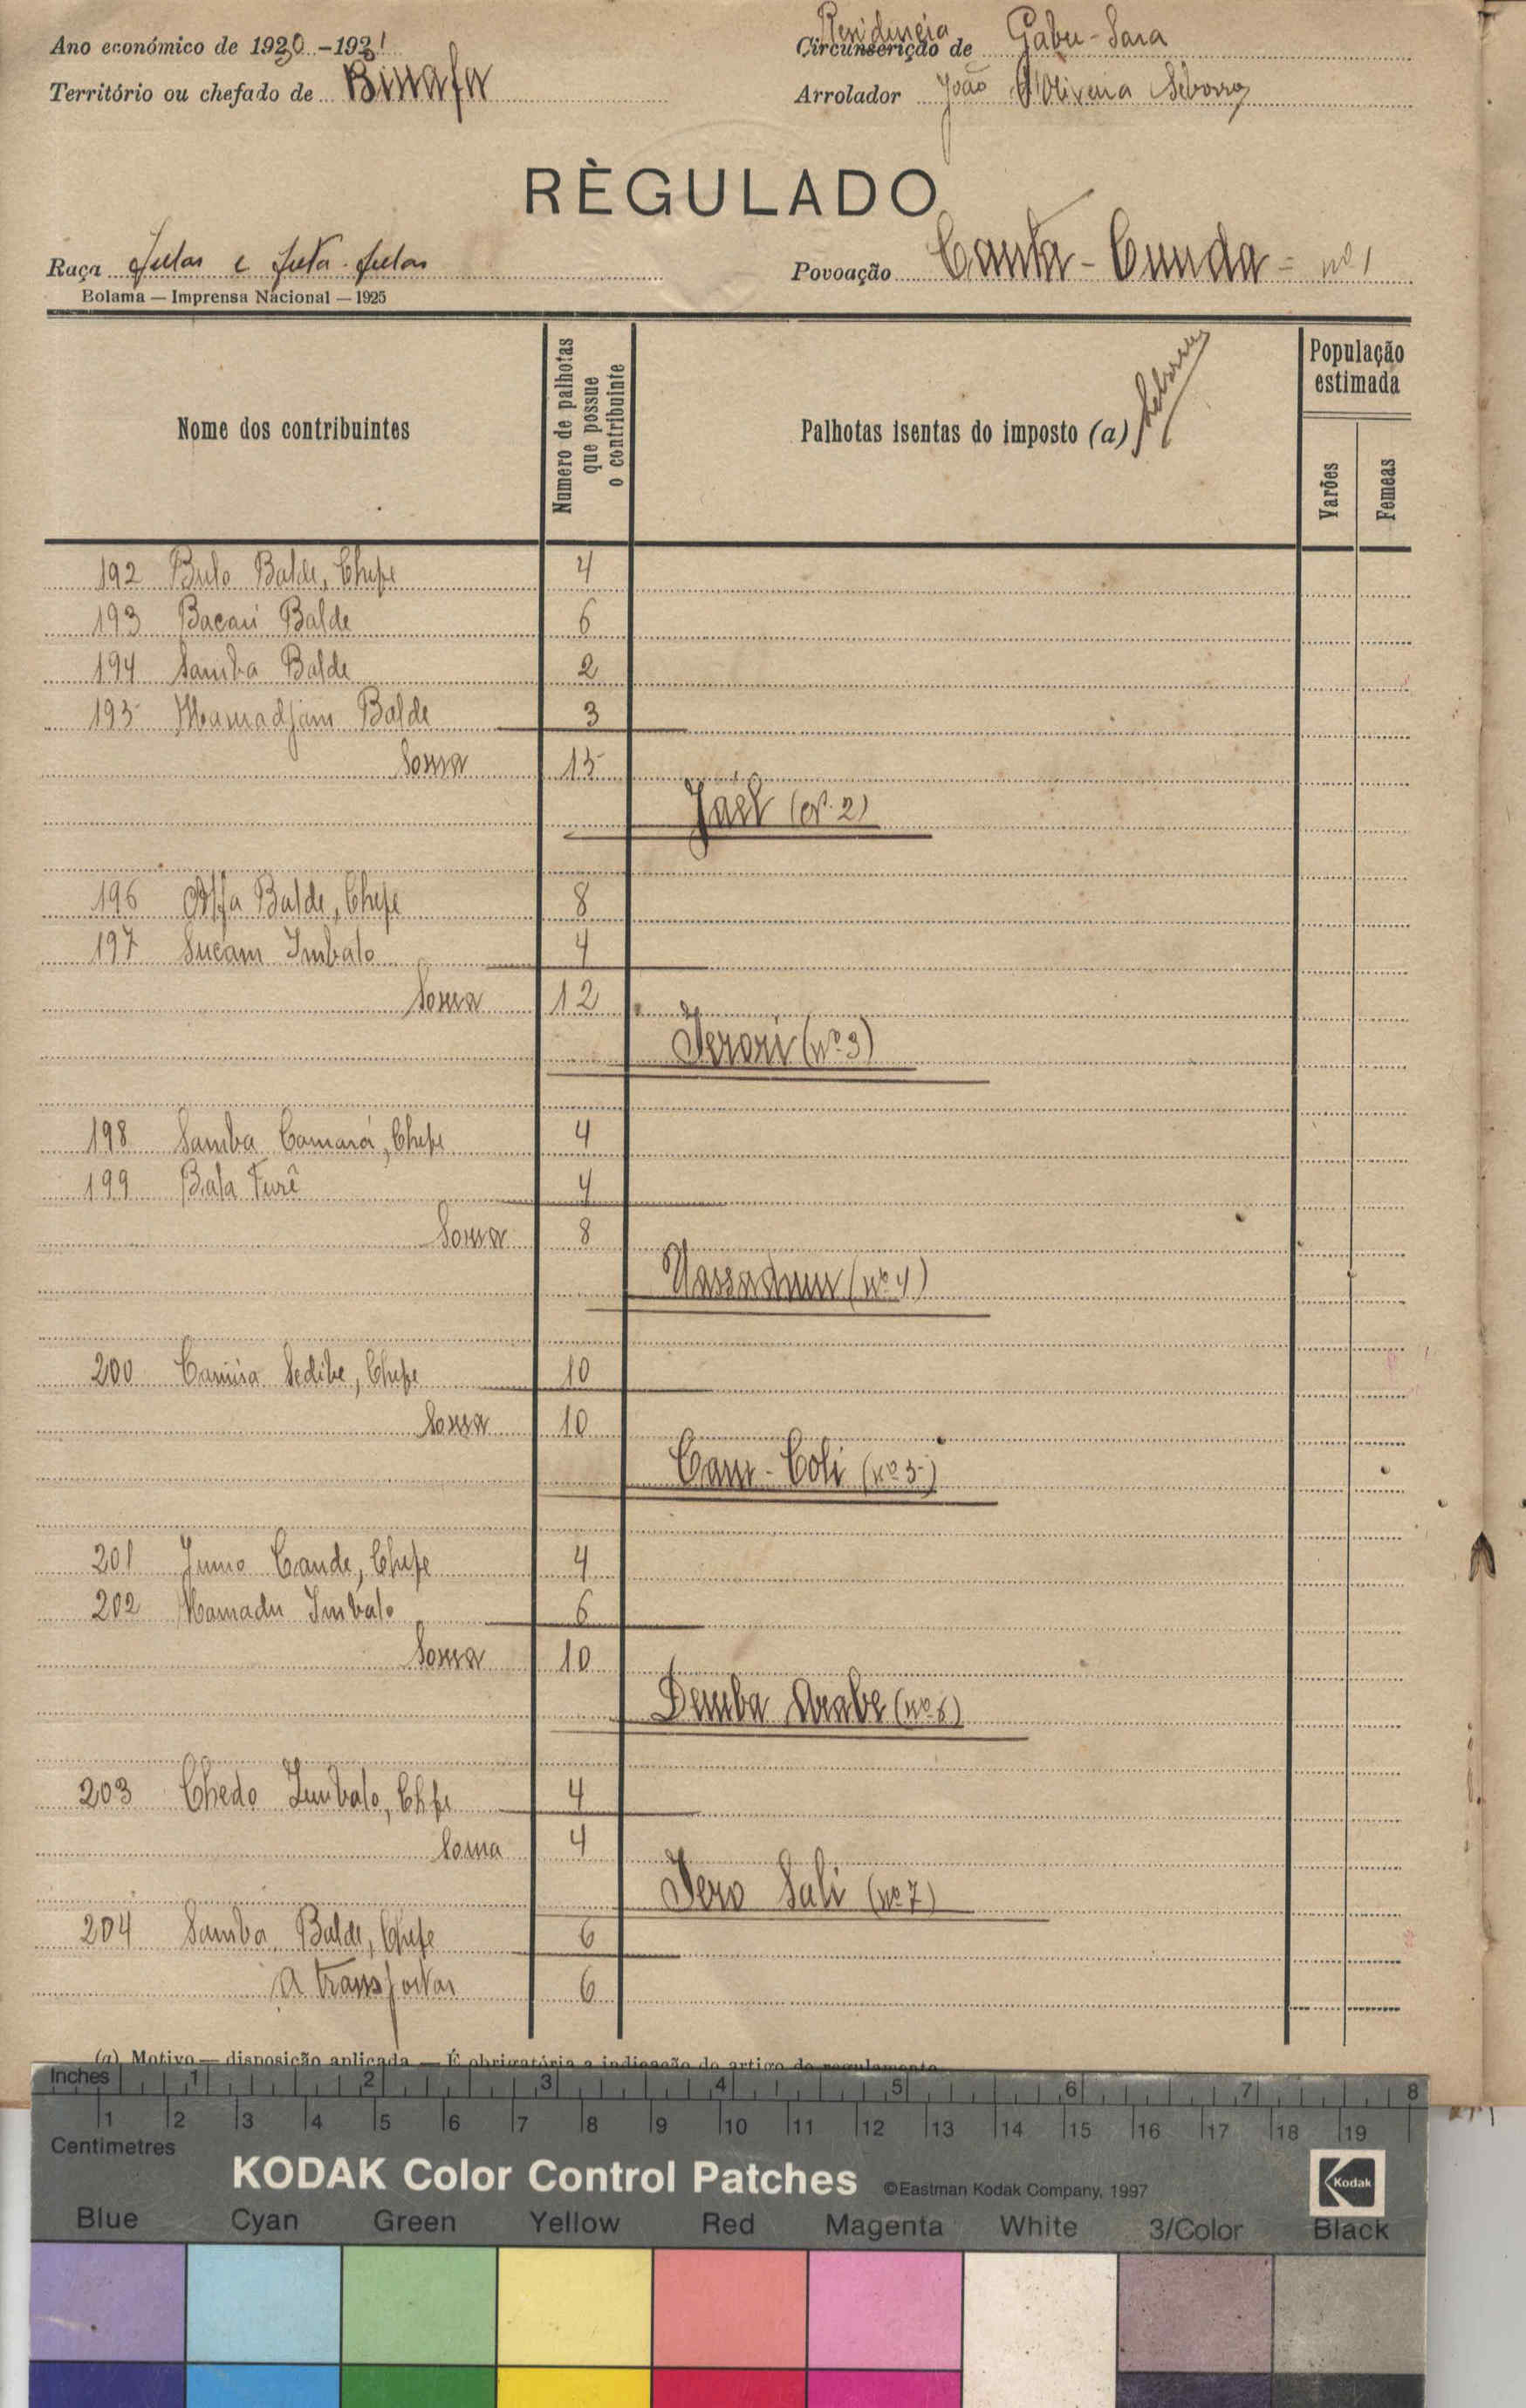 Ano económico de 1930-1931
Residencia
Circunscrição de Gabu-Sara
Território ou chefado de Binafa
Arrolador João d'Oliveira
RÈGULADO
Raça Fulas e futa-fulas
Povoação Canta-Cunda = nº 1
Bolama — Imprensa Nacional — 1925
Nome dos contribuintes
Numero de palhotas que possue o contribuinte
Palhotas isentas do imposto (a)
População estimada
Varões
Femeas
192 Bulo Balde, Chefe 4
193 Bacari Balde 6
194 Samba Balde 2
195 Mamadjam Balde 3
Soma 15
(nº 2)
196 Alfa Balde, Chefe 8
197 Sucam Imbalo 4
Soma 12
(nº 3)
198 Samba Camará, Chefe 4
199 Bala Turê 4
Soma 8
(nº 4)
200 Camisa Sedibe, Chefe 10
Soma 10
Cam-Coli (nº 5)
201 Jumo Cande, Chefe 4
202 Mamadu Imbalo 6
Soma 10
Demba Arabe (nº 6)
203 Chedo Imbalo, Chfe 4
Soma 4
Jero Sali (nº 7)
204 Samba Balde, Chefe 6
A transportar 6
(a) Motivo — disposição aplicada — É obrigatória a indicação do artigo do regulamento
Inches 1 2 3 4 5 6 7 8
1 2 3 4 5 6 7 8 9 10 11 12 13 14 15 16 17 18 19
Centimetres
KODAK Color Control Patches ©Eastman Kodak Company, 1997 Kodak
Blue Cyan Green Yellow Red Magenta White 3/Color Black